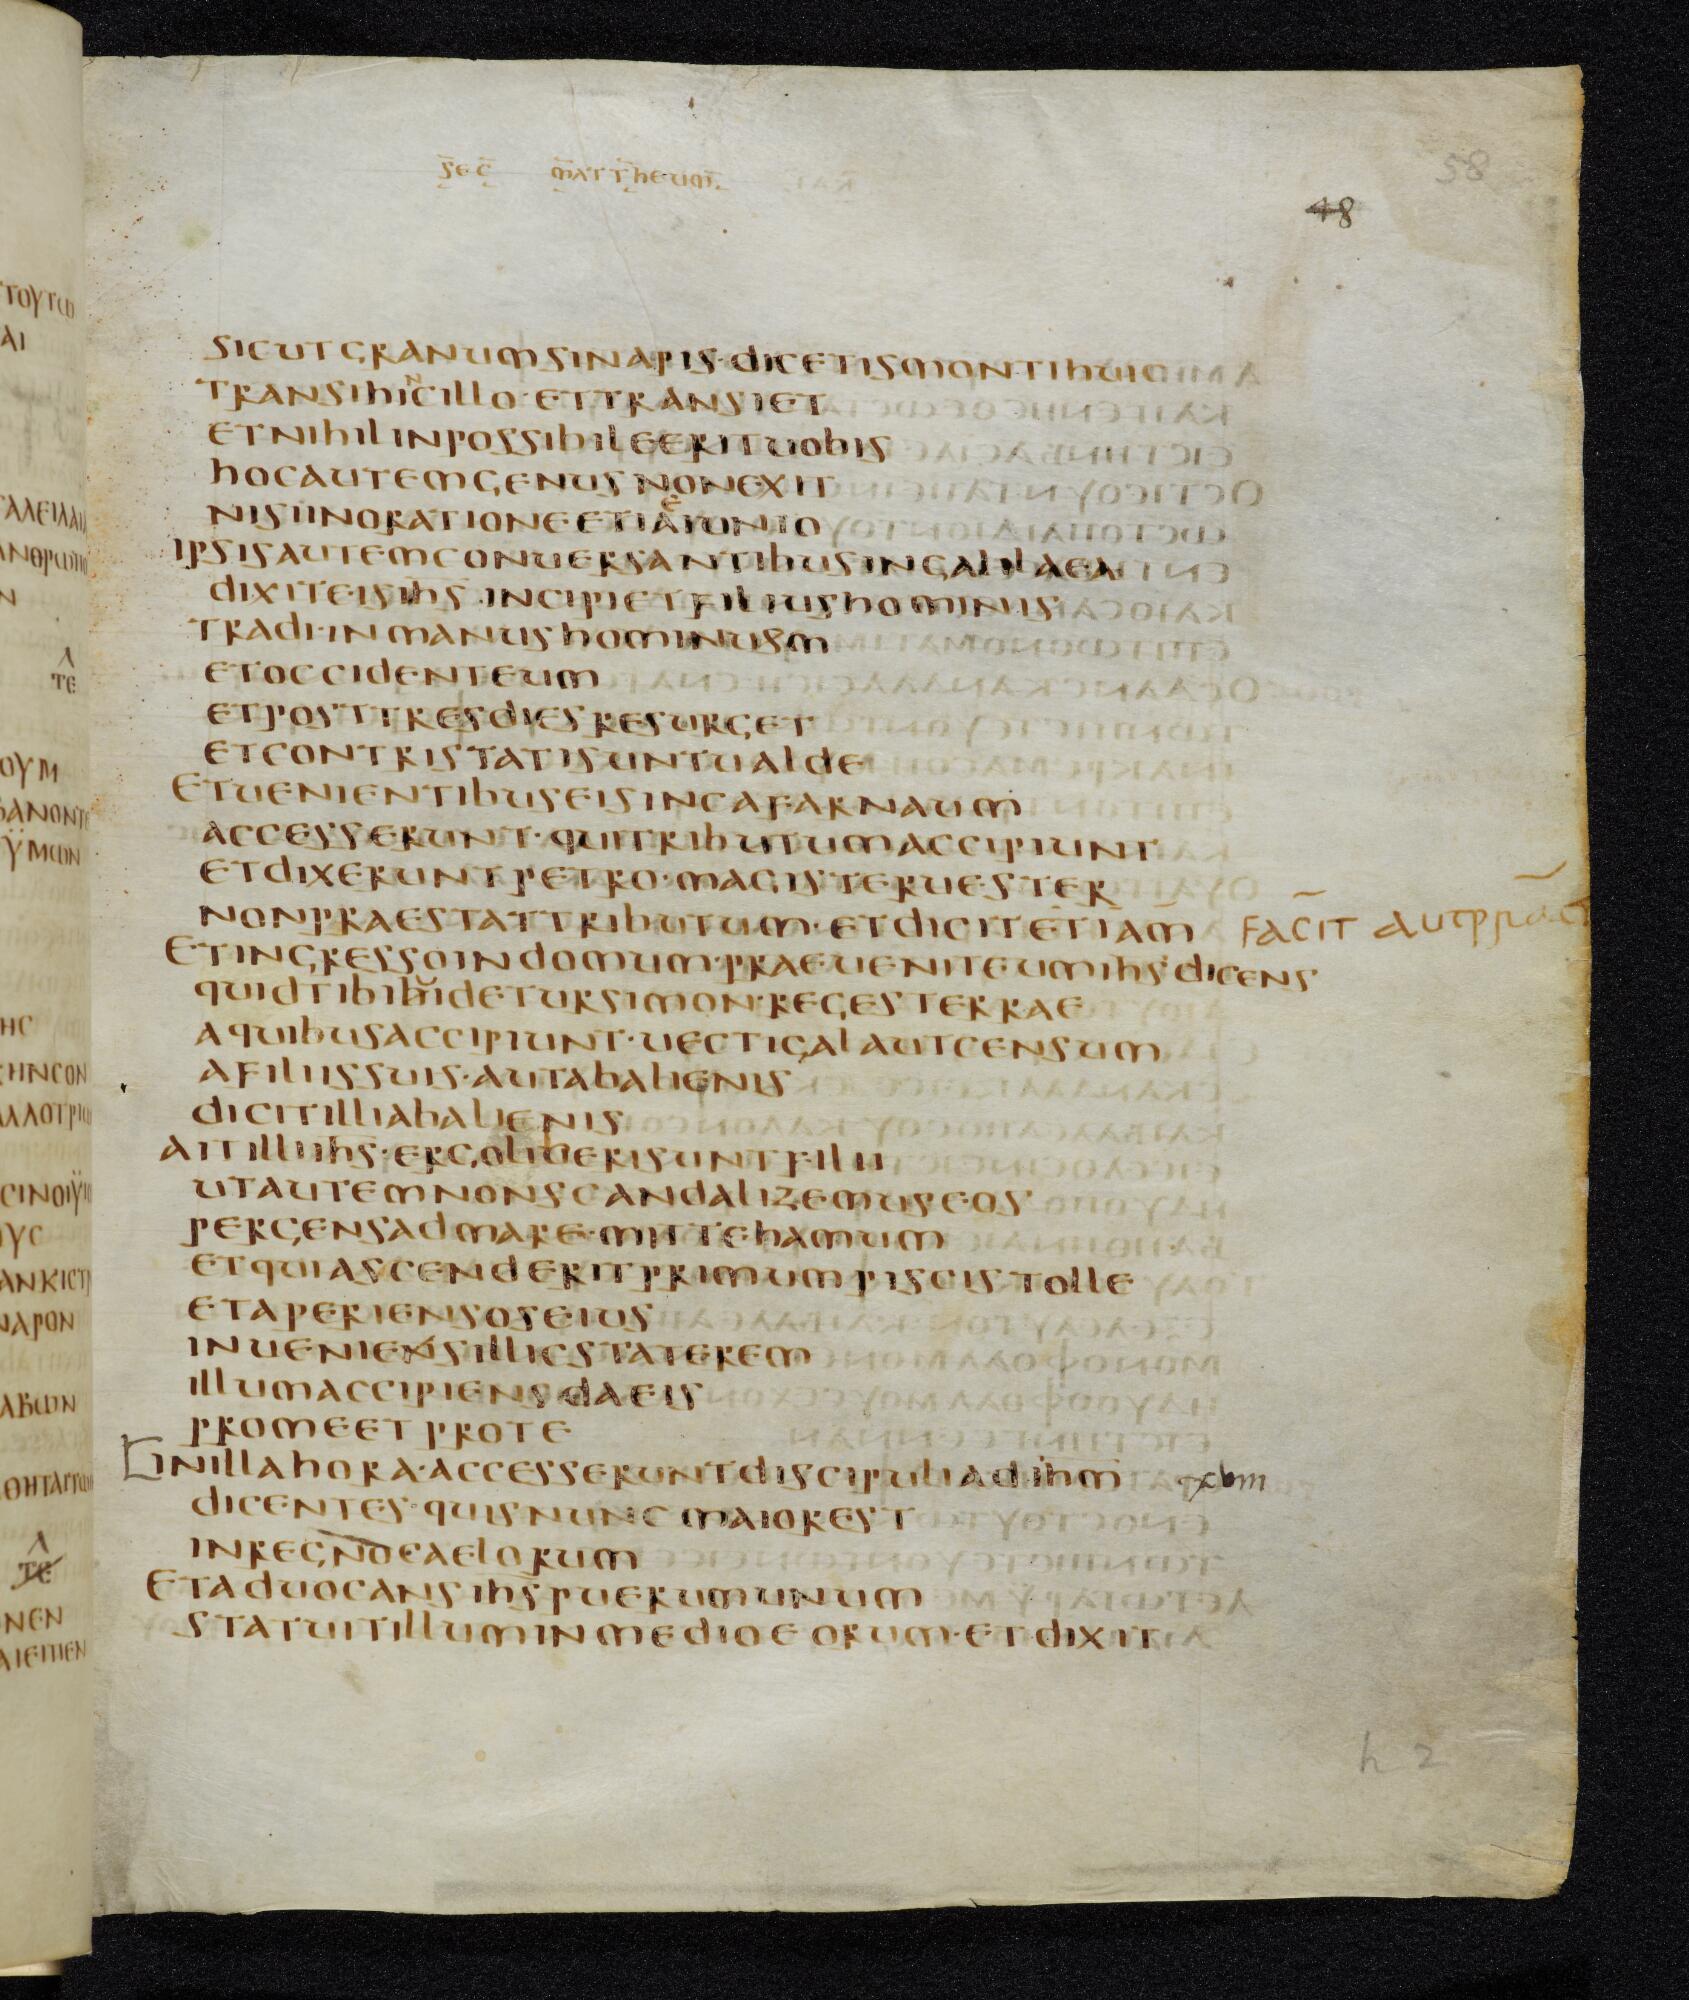 SEC MATTHEUM
58
48
SICUT GRANUM SINAPIS · DICETIS MONTI HUIC
TRANSI HINC ILLO · ET TRANSIET
ET NIHIL INPOSSIBILE ERIT UOBIS
HOC AUTEM GENUS NON EXIT
NISI IN ORATIONE ET IEIUNIO
IPSIS AUTEM CONUERSANTIBUS IN GALILAEA
DIXIT EIS IHS · INCIPIET FILIUS HOMINIS
TRADI · IN MANUS HOMINUM
ET OCCIDENT EUM
ET POST TRES DIES RESURGET
ET CONTRISTATI SUNT UALDE
ET UENIENTIBUS EIS IN CAFARNAUM
ACCESSERUNT · QUI TRIBUTUM ACCIPIUNT
ET DIXERUNT PETRO · MAGISTER UESTER
NON PRAESTAT TRIBUTUM · ET DICIT ETIAM FACIT
ET INGRESSO IN DOMUM · PRAEUENIT EUM IHS DICENS
QUID TIBI UIDETUR SIMON · REGES TERRAE
A QUIBUS ACCIPIUNT · UECTIGAL AUT CENSUM
A FILIIS SUIS · AUT AB ALIENIS
DICIT ILLI AB ALIENIS
AIT ILLI IHS · ERGO LIBERI SUNT FILII
UT AUTEM NON SCANDALIZEMUS EOS
PERGENS AD MARE · MITTE HAMUM
ET QUI ASCENDERIT PRIMUM PISCIS TOLLE
ET APERIENS OS EIUS
INUENIENS ILLIC STATEREM
ILLUM ACCIPIENS DA EIS
PRO ME ET PRO TE
IN ILLA HORA · ACCESSERUNT DISCIPULI AD IHM
DICENTES · QUIS NUNC MAIOR EST
IN REGNO CAELORUM
ET ADUOCANS IHS PUERUM UNUM
STATUIT ILLUM IN MEDIO EORUM · ET DIXIT
h 2